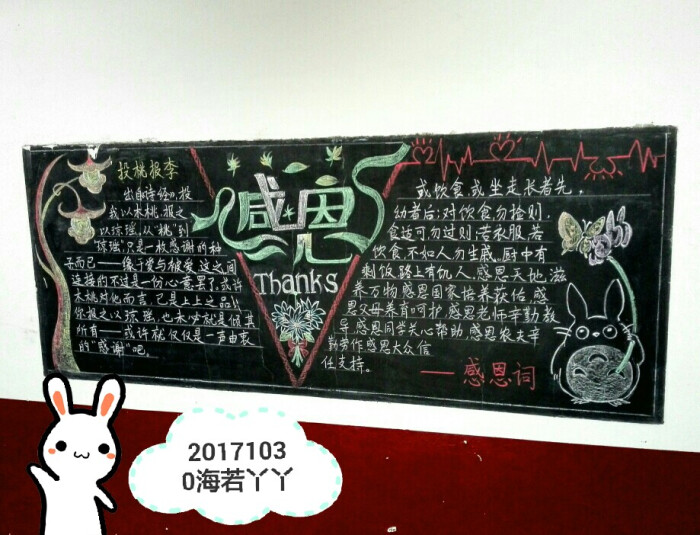 投桃报李
出自《诗经》，投
我以木桃，报之
以琼瑶，从"桃"到
"琼瑶"，只是一枚感谢的种
子而已——像付爱与被爱，这之间
连接的不过是一份心意罢了，或许
木桃对他而言，已是上上之品，
你报之以琼瑶，也未必就是倾其
所有——或许就仅仅是一声由衷
的"感谢"吧。
感恩
Thanks
或饮食，或坐走，长者先，
幼者后；对饮食，勿拣则，
食适可，勿过则；若衣服，若
饮食，不如人，勿生戚。厨中有
剩饭，路上有饥人，感恩天地滋
养万物，感恩国家培养获佑，感
恩父母养育呵护，感恩老师辛勤教
导，感恩同学关心帮助，感恩农夫辛
勤劳作，感恩大众信
任支持。
——感恩词
2017103
0海若丫丫